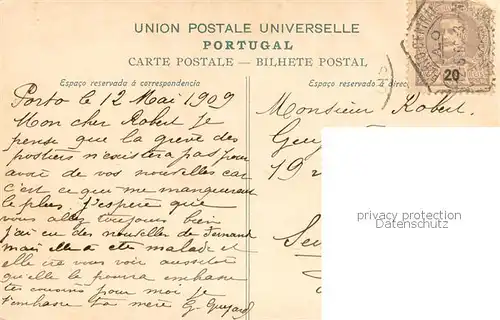 UNION POSTALE UNIVERSELLE
PORTUGAL
CARTE POSTALE — BILHETE POSTAL
Espaço reservado á correspondencia
Espaço reservado á direc
20
Porto le 12 Mai 1909
Mon cher Robert Je
pense que la greve des
postiers n'existera pas pour
avoir de vos nouvelles car
c'est ce qui me manqueront
le plus, J'espère que
vous allez toujours bien
j'ai eu des nouvelles de Fernand
mais elle a ete malade et
elle ira vous voir aussitot
qu'elle le pourra embrasse
tes cousins pour moi je
t'embrasse ta mère G. Guyard
Monsieur Robert
19
privacy protection
VDDatenschutz